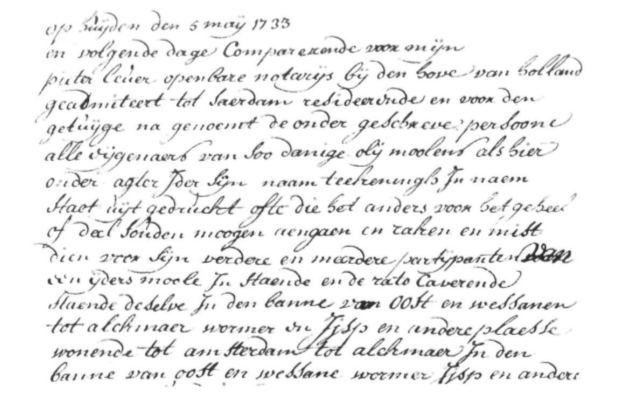 op huijden den 5 maij 1733
en volgende dage Comparerende voor mijn
pieter lener openbare notarijs bij den hove van holland
geadmiteert tot Saerdam resideerende en voor den
getuijge na genoemt de onder geschreve persoone
alle eijgenaers van soo danige olij moolens als hier
onder agter Jder sijn naam teekeningh In naem
staet uijt gedruckt ofte die het anders voor het geheel
of deel souden moogen aengaen en raken en mitst
dien voor sijn verdere en meerdere partijpanten van
een ijders moole In staende en de rato Caverende
staende deselve In den banne van oost en wessanen
tot alckmaer wormer en Jisp en andere plaesse
wonende tot amsterdam tot alchmaer In den
banne van oost en wessane wormer Jisp en andere